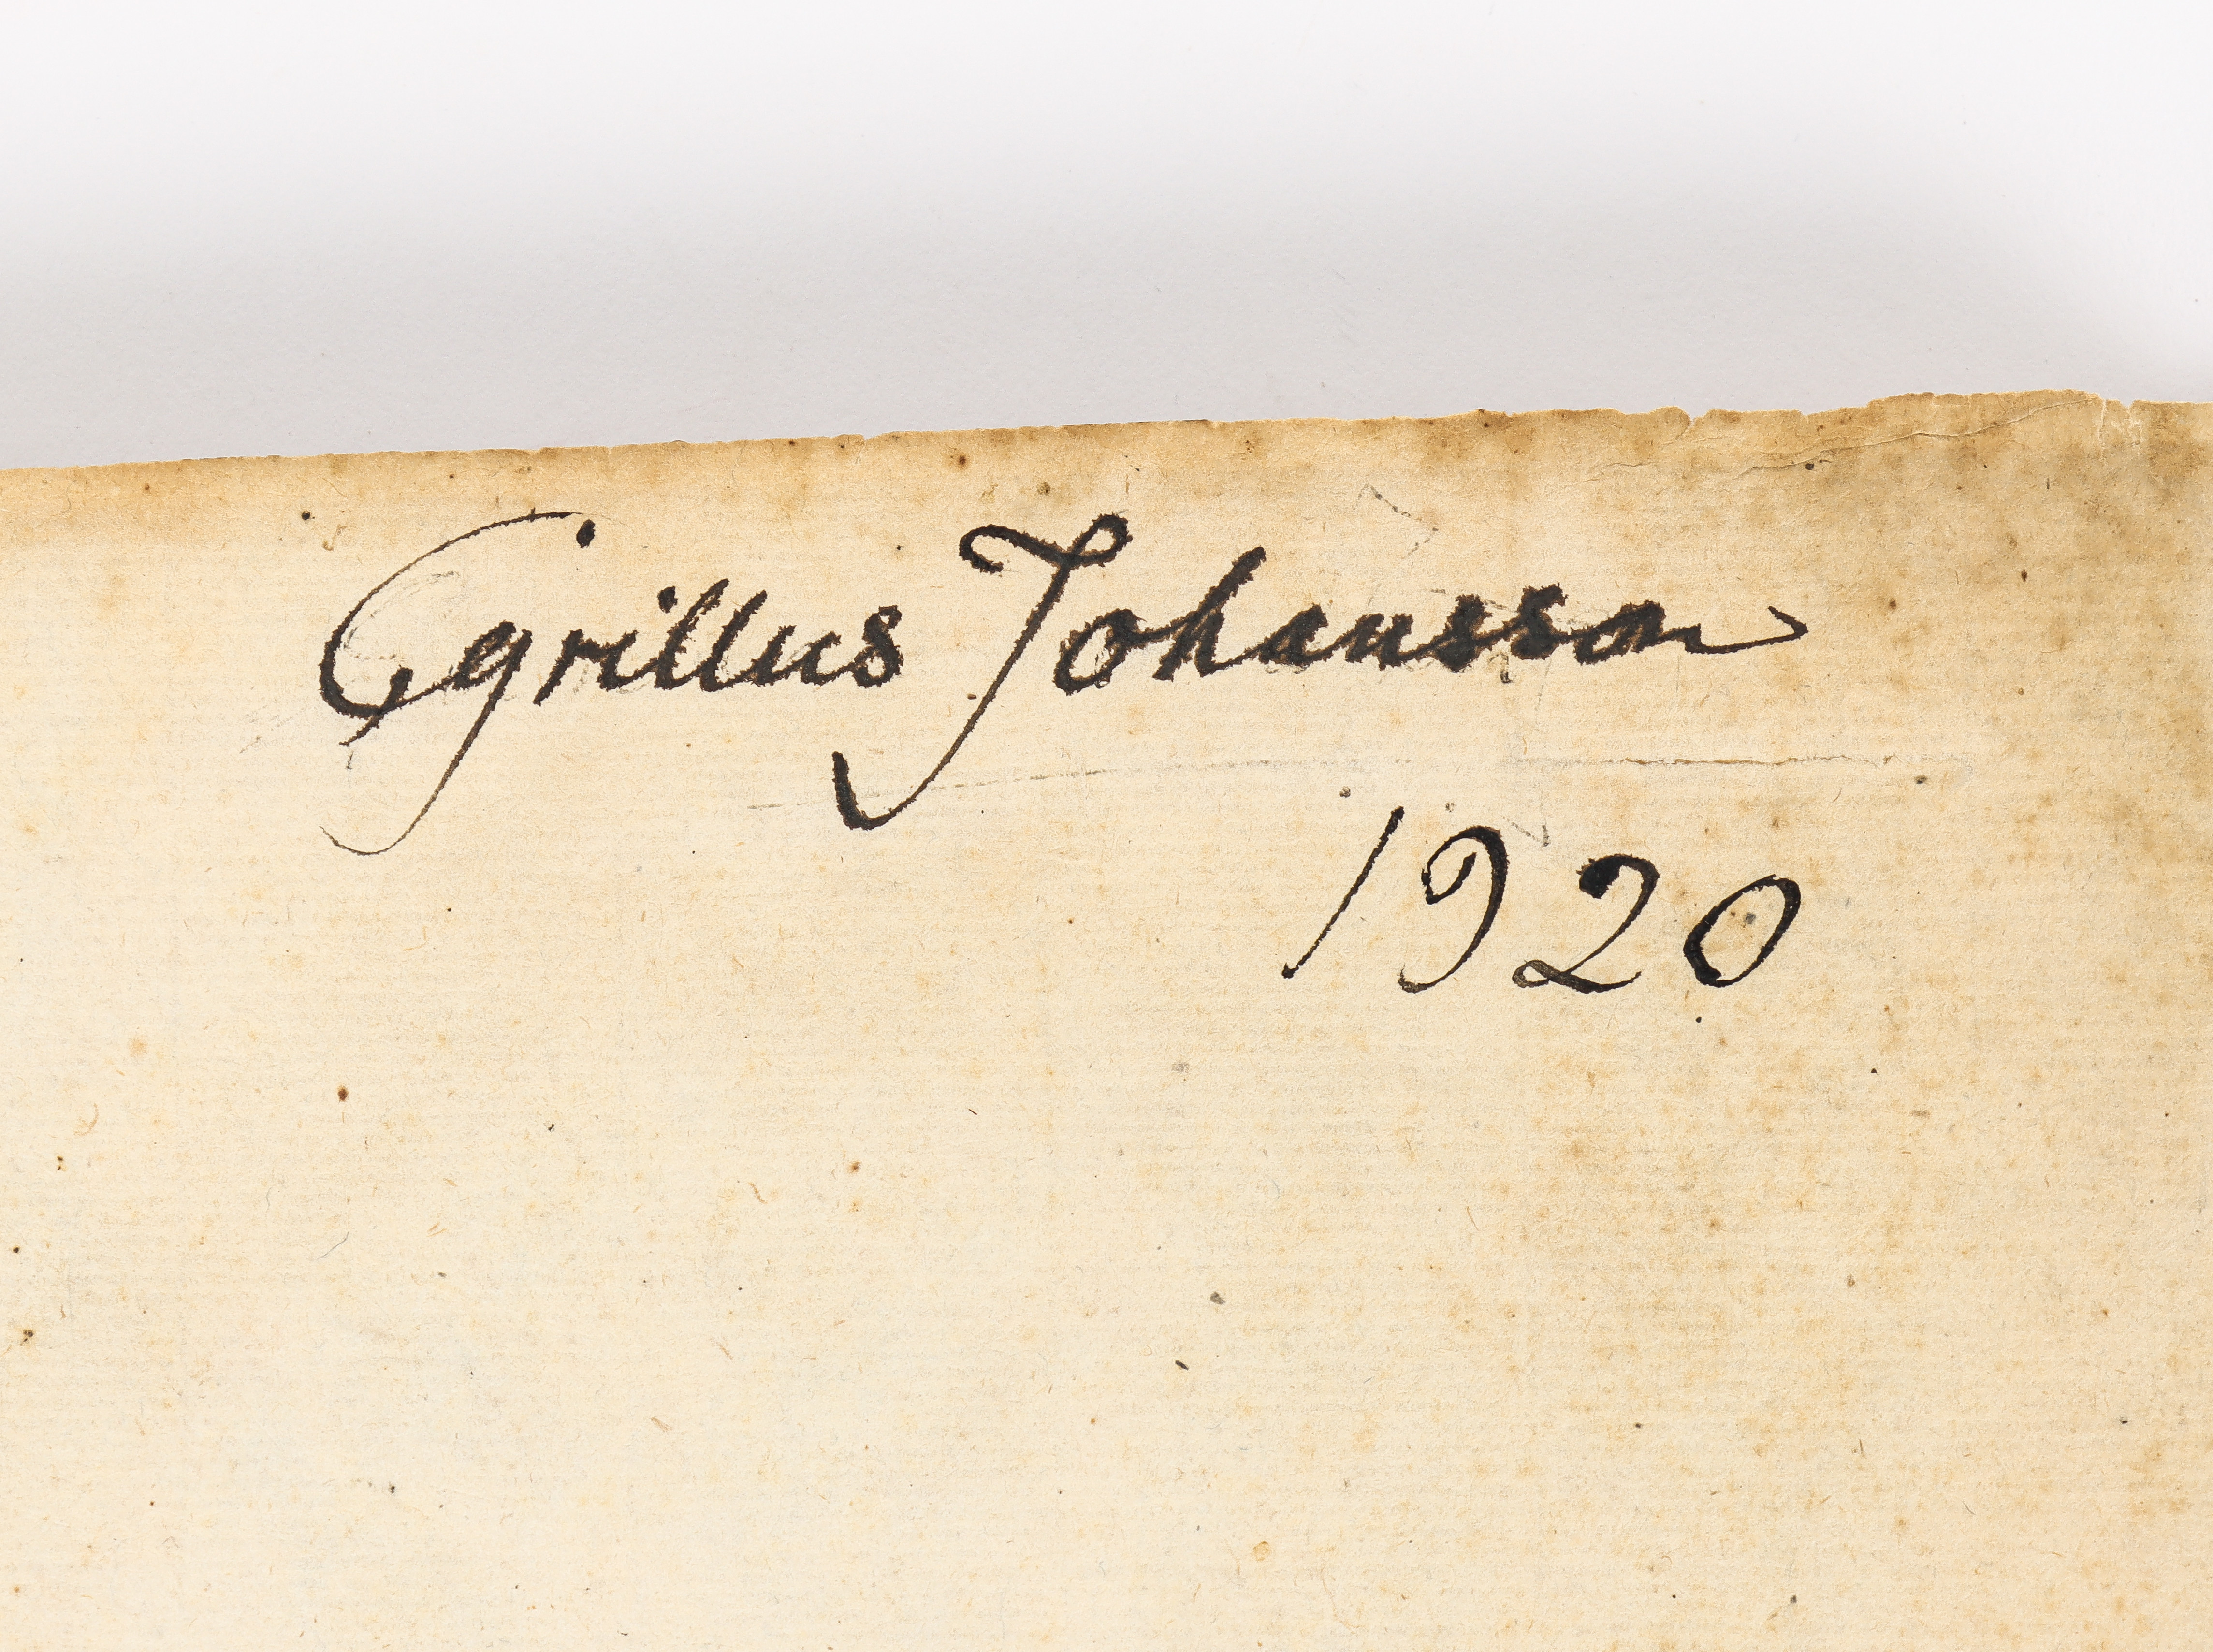 Cyrillus Johansson
1920